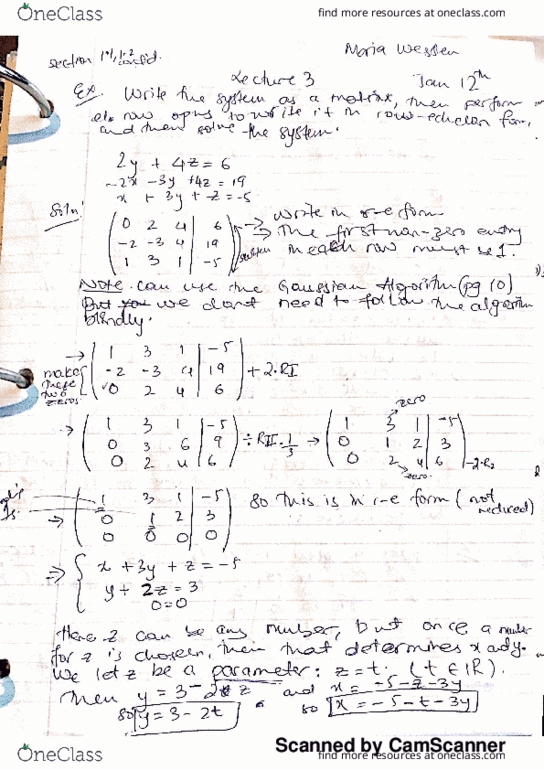 OneClass
find more resources at oneclass.com
section 1.1, 1.2 cont'd.
Maria Wesslen
Lecture 3
Jan 12th
Ex. Write the system as a matrix, then perform
el. row opns to write it in row-echelon form,
and then solve the system.
2y + 4z = 6
-2x -3y +4z = 19
x + 3y + z = -5
Soln:
0 2 4 | 6
-2 -3 4 | 19
1 3 1 | -5
→ Write in r-e form
→ The first non-zero entry
in each row must be 1.
Note can use the Gaussian Algorithm (pg 10)
But you we don't need to follow the algorithm
blindly.
make these two zeros.
→ 1 3 1 | -5
-2 -3 4 | 19 + 2·RI
0 2 4 | 6
→ 1 3 1 | -5
0 3 6 | 9 ÷ RII·1/3
0 2 4 | 6
zero
→ 1 3 1 | -5
0 1 2 | 3
0 2 4 | 6 -2·R2
zero
→ 1 3 1 | -5
0 1 2 | 3
0 0 0 | 0
so this is in r-e form (not reduced)
⇒ x + 3y + z = -5
y + 2z = 3
0=0
Here z can be any number, but once a
for z is chosen, then that determines x and y.
We let z be a parameter: z = t. (t ∈ IR).
Then y = 3 - 2z and x = -5 - z - 3y
so y = 3 - 2t so x = -5 - t - 3y
Scanned by CamScanner
OneClass
find more resources at oneclass.com